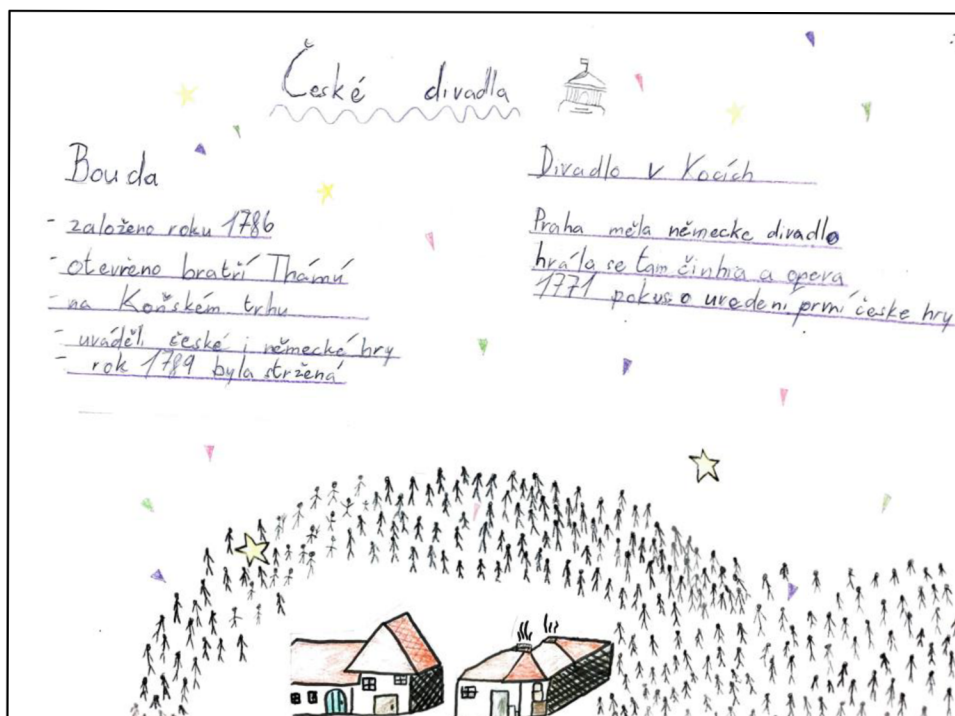 České divadla
Bouda
- založeno roku 1786
- otevřeno bratří Thámů
- na Koňském trhu
- uváděli české i německé hry
- rok 1789 byla stržená
Divadlo v Kocích
Praha měla německe divadlo
hrála se tam činhra a opera
1771 pokus o uvedení první česke hry